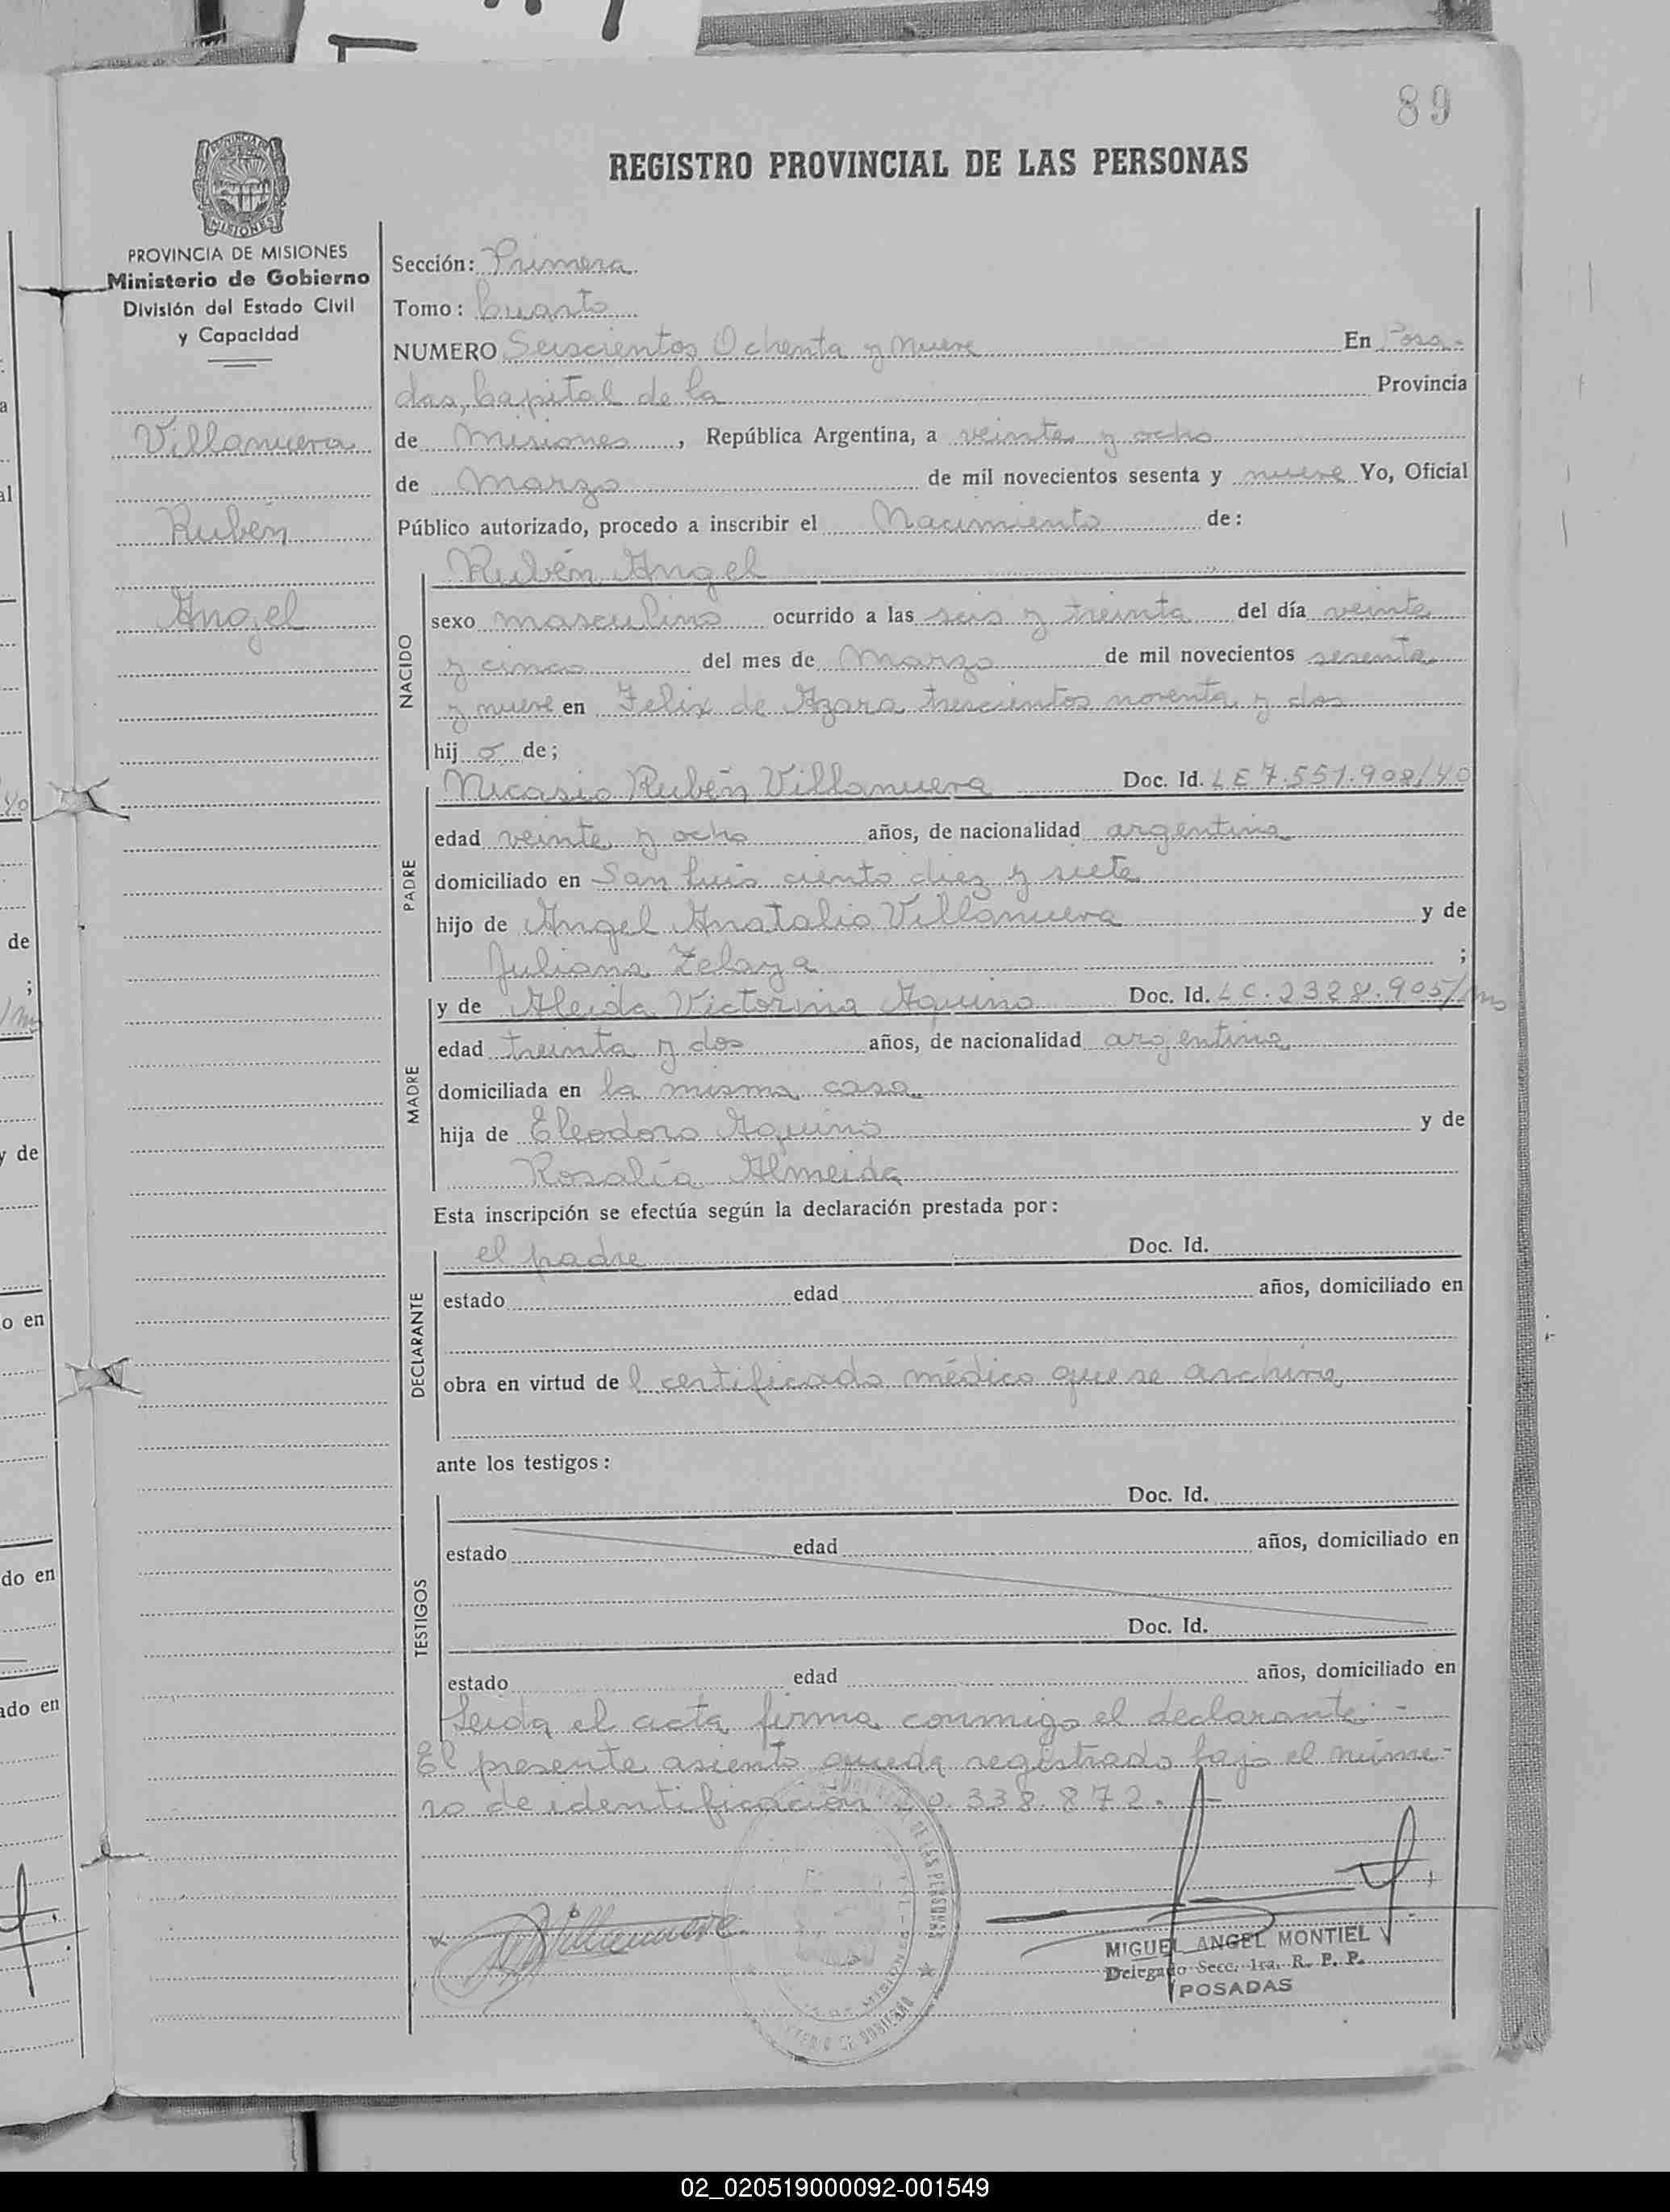 89
REGISTRO PROVINCIAL DE LAS PERSONAS
PROVINCIA DE MISIONES
Ministerio de Gobierno
División del Estado Civil
y Capacidad
Villanueva
Rubén
Angel
Sección: Primera
Tomo: Cuarto
NUMERO Seiscientos Ochenta y nueve En Posa-
das, Capital de la Provincia
de Misiones, República Argentina, a veinte y ocho
de Marzo de mil novecientos sesenta y nueve Yo, Oficial
Público autorizado, procedo a inscribir el Nacimiento de:
NACIDO
Rubén Angel
sexo masculino ocurrido a las seis y treinta del día veinte
y cinco del mes de Marzo de mil novecientos sesenta
y nueve en Felix de Azara trescientos noventa y dos
hij o de;
PADRE
Nicasio Rubén Villanueva Doc. Id. LE 7.551.908/40
edad veinte y ocho años, de nacionalidad argentina
domiciliado en San Luis ciento diez y siete
hijo de Angel Anatalio Villanueva y de
Juliana Zelaya ;
MADRE
y de Aleida Victorina Aquino Doc. Id. LC. 2328.905/
edad treinta y dos años, de nacionalidad argentina
domiciliada en la misma casa
hija de Eleodoro Aquino y de
Rosalía Almeida
Esta inscripción se efectúa según la declaración prestada por:
DECLARANTE
el padre Doc. Id.
estado edad años, domiciliado en
obra en virtud de l certificado médico que se archiva
ante los testigos:
TESTIGOS
Doc. Id.
estado edad años, domiciliado en
Doc. Id.
estado edad años, domiciliado en
Leida el acta firma conmigo el declarante.-
El presente asiento queda registrado bajo el núme-
ro de identificación 20.338.872.-
Villanueva
MIGUEL ANGEL MONTIEL
Delegado Secc. 1ra. R. P. P.
POSADAS
02_020519000092-001549